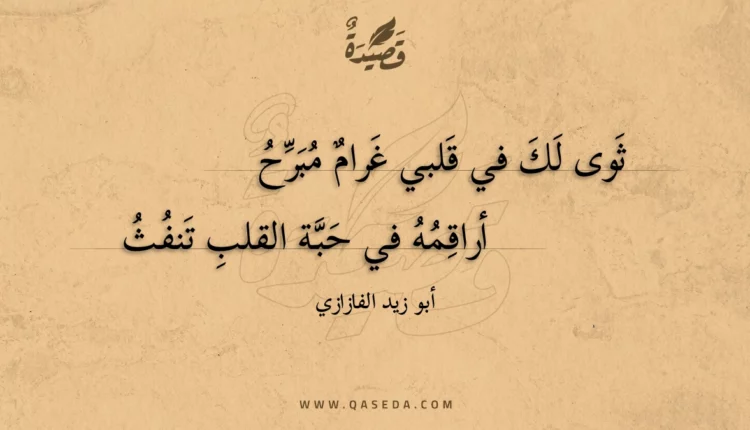 قَصِيْدَةٌ
ثَوى لَكَ في قَلبي غَرامٌ مُبَرِّحُ
أراقِمُهُ في حَبَّة القلبِ تَنفُثُ
أبو زيد الفازازي
WWW.QASEDA.COM